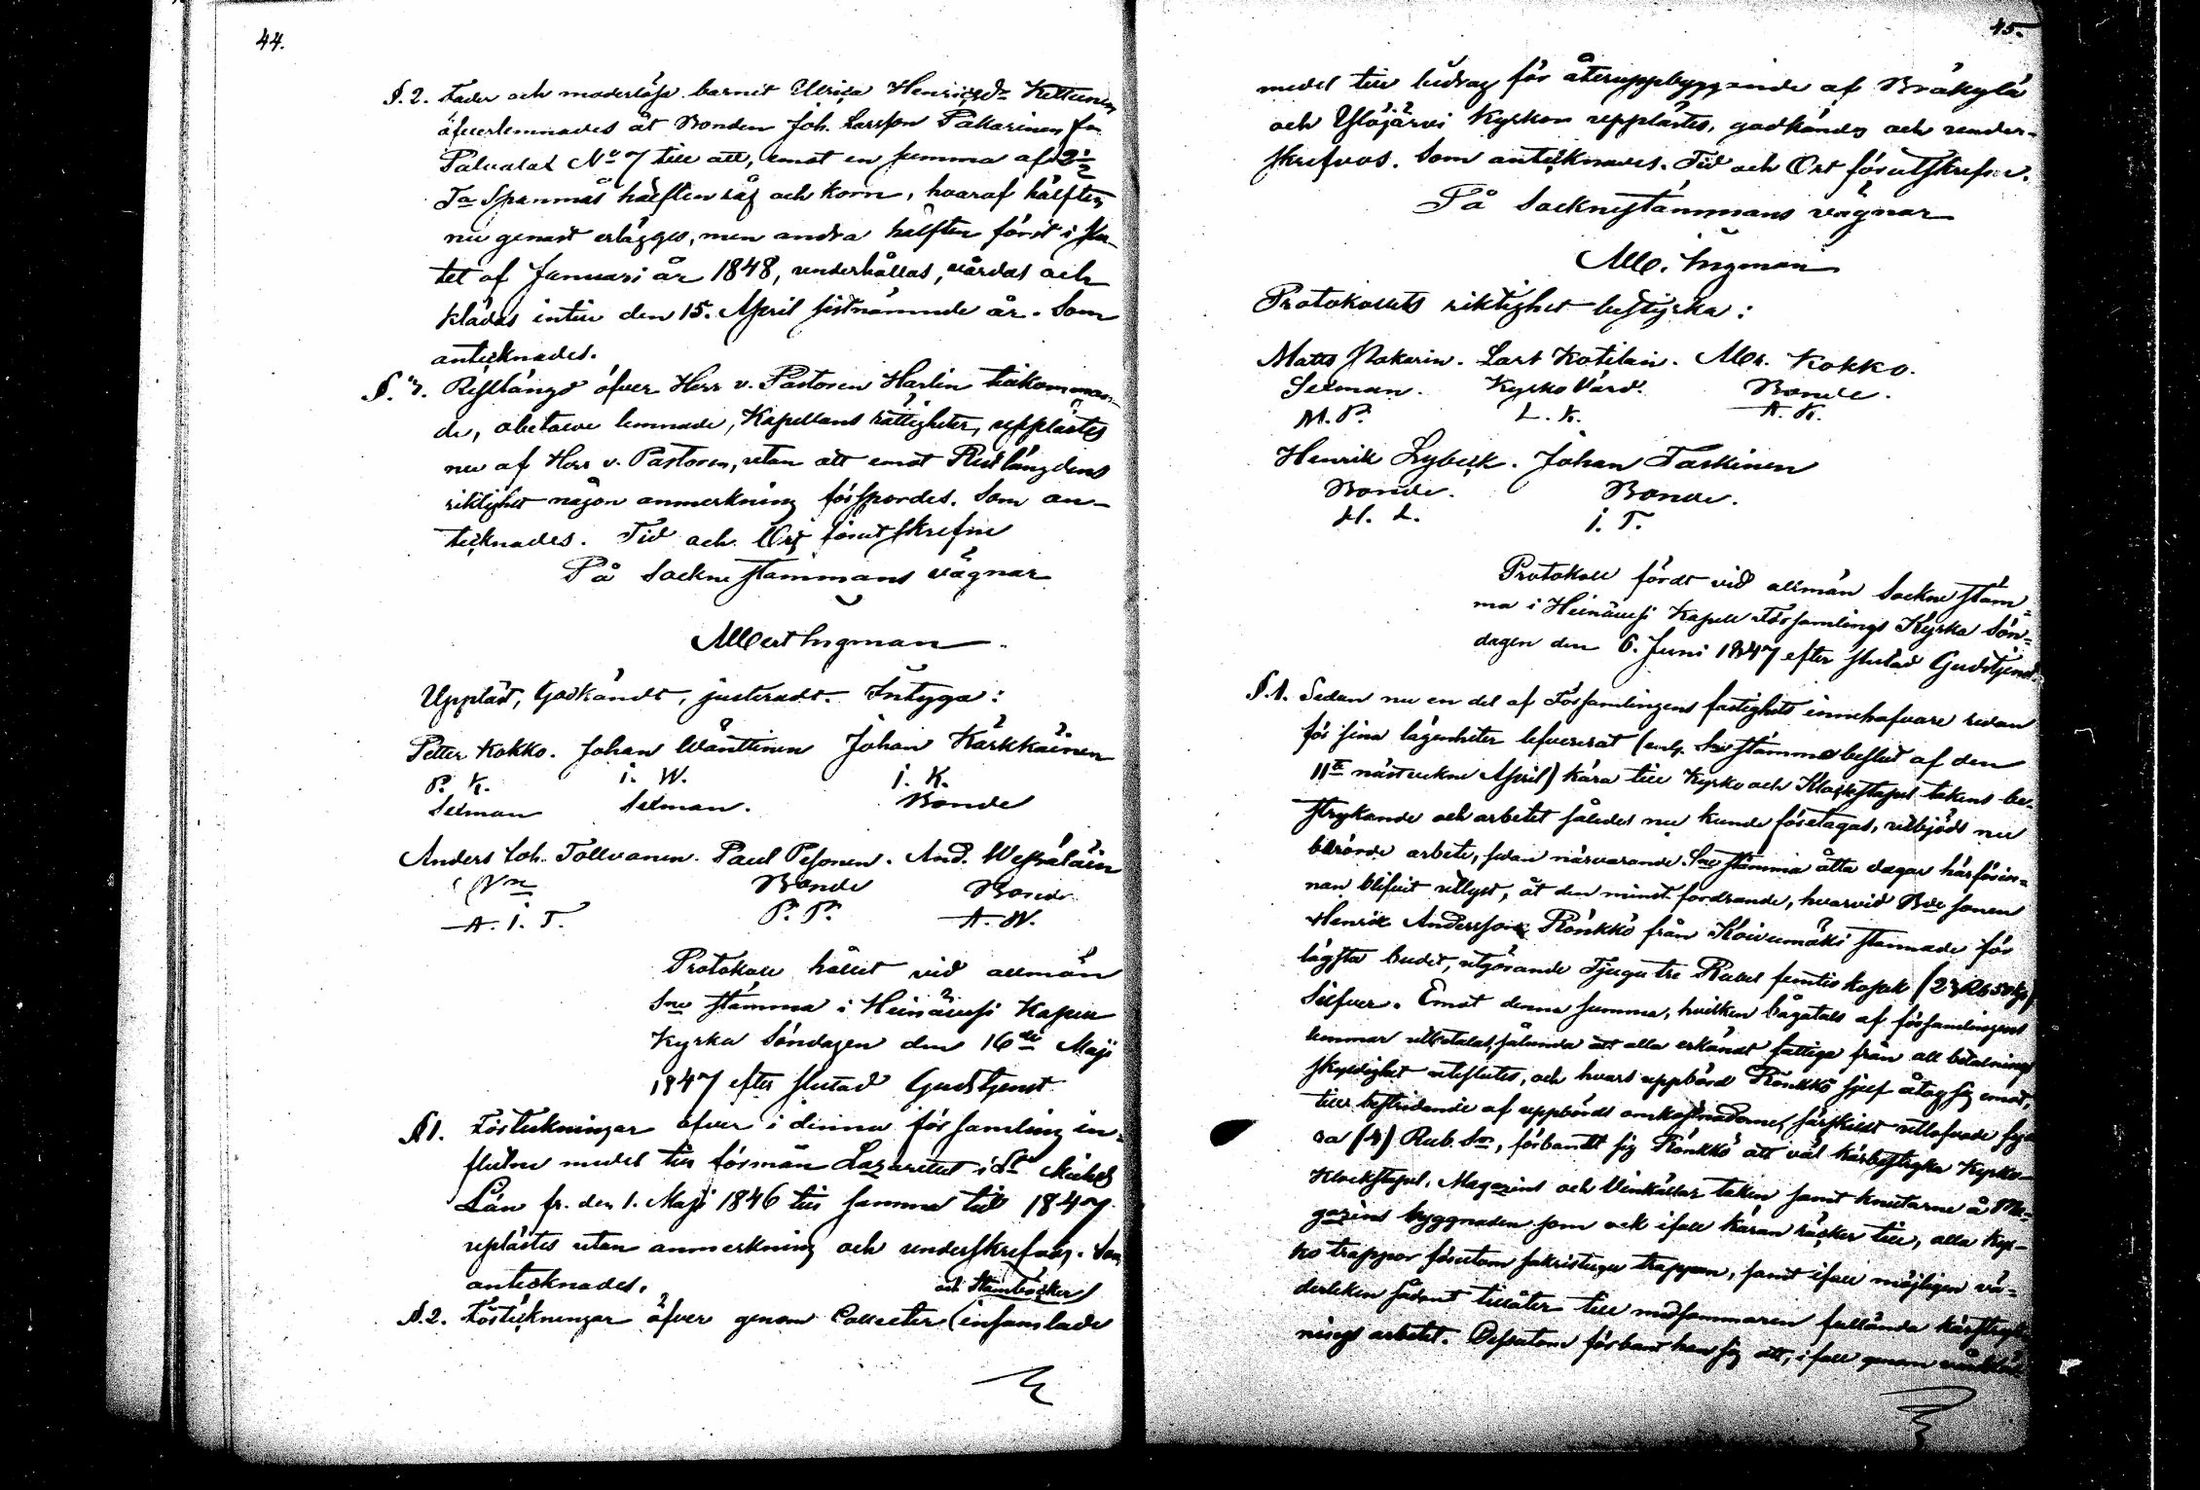 44.
§. 2. Fader och moderlösa barnet Ulrica Henricsdr Kettunen
öfverlemnades åt Bonden Joh. Larsson Pakarinen fr.
Palvalax No 7 till att, emot en summa af 2½
Ta Spanmål hälften råg och korn, hvaraf hälften
nu genast erlägges, men andra hälften först i slu-
tet af Januari år 1848, underhållas, vårdas och
klädas intill den 15. April sistnämnde år. Som
antecknades.
§. 3. Restlängd öfver Herr v. Pastoren Harlin tillkomman-
de, obetalde lemnade, Kapellans rättigheter, upplästes
nu af Herr v. Pastoren, utan att emot Restlängdens
riktighet någon anmerkning förspordes. Som an-
tecknades. Tid och Ort förutskrefne
På Sockne stämmans vägnar
Albert Ingman
Uppläst, Godkändt, justeradt. Intyga:
Petter Kokko. Johan Wänttinen Johan Kärkkäinen
P. K. i. W. i. K.
Sexman Sexman. Bonde
Anders Joh. Tollvanen. Paul Pesonen. And. Wesaläin
Bonde Bonde
A. i. T. P. P. A. W.
Protokoll hållet vid allmän
Sne stämma i Heinävesi Kapell
Kyrka Söndagen den 16de Maji
1847 efter slutad Gudstjenst
§ 1. Förteckningar öfver i denna församling in-
flutne medel till förmån Lazarettet i St Michels
Län fr. den 1. Maji 1846 till samma tid 1847
upplästes utan anmerkning och underskrefvos. Som
antecknades.
och Stamböcker
§. 2. Förteckningar öfver genom Collecter (insamlade
45.
medel till bidrag för återuppbyggande af Bräkylä
och Ylöjärvi Kyrkor upplästes, godkändes och under-
skrefvos. Som antecknades. Tid och Ort förutskrefne.
På Socknestämmans vägnar
Alb. Ingman
Protokollets riktighet bestyrka:
Matts Pakarin. Lars Kotilain. Alex. Kokko.
Sexman. Kyrko Värd. Bonde.
M. P. L. K. A. K.
Henrik Lybeck. Johan Taskinen
Bonde. Bonde.
H. L. i. T.
Protokoll fördt vid allmän Sockne stäm-
ma i Heinävesi Kapell Församlings Kyrka Sön-
dagen den 6. Juni 1847 efter slutad Gudstjenst.
§. 1. Sedan nu en del af Församlingens fastighets innehafvare redan
för sina lägenheter lefvererat (enl. Sne stämmobeslut af den
11te nästvekne April) kära till Kyrko och Klockstapel takens be-
strykande och arbetet således nu kunde företagas, utbjöds nu
berörde arbete, sedan närvarande Sne stämma åtta dagar härförin-
nan blifvit utlyst, åt den minst fordrande, hvarvid Bde sonen
Henrik Andersson Rönkkö från Koivumäki stannade för
lägsta budet, utgörande Tjugu tre Rubel femtio kopek (23 Rb 50 kp)
Silfver. Emot denna summa, hvilken bågatals af församlingens
lemmar utbetalas, sålunda att alla erkändt fattiga från all betalnings
skyldighet uteslutes, och hvars uppbörd Rönkkö sjelf åtog sig emot,
till bestridande af uppbörds omkostnaderne, särskildt utlofvade fy-
ra (4) Rub. Sr., förbandt sig Rönkkö att väl kärbestryka Kyrko-
Klockstapel, Magazins och Vinkällar taken samt knutarne å Ma-
gazins byggnaden som ock ifall käran räcker till, alla Kyr-
ko trappor förutom sakristuge trappan, samt ifall möjligen vä-
derleken sådant tillåter till midsommaren fullända kärstryk-
nings arbetet. Dessutom förbant han sig att, ifall genom